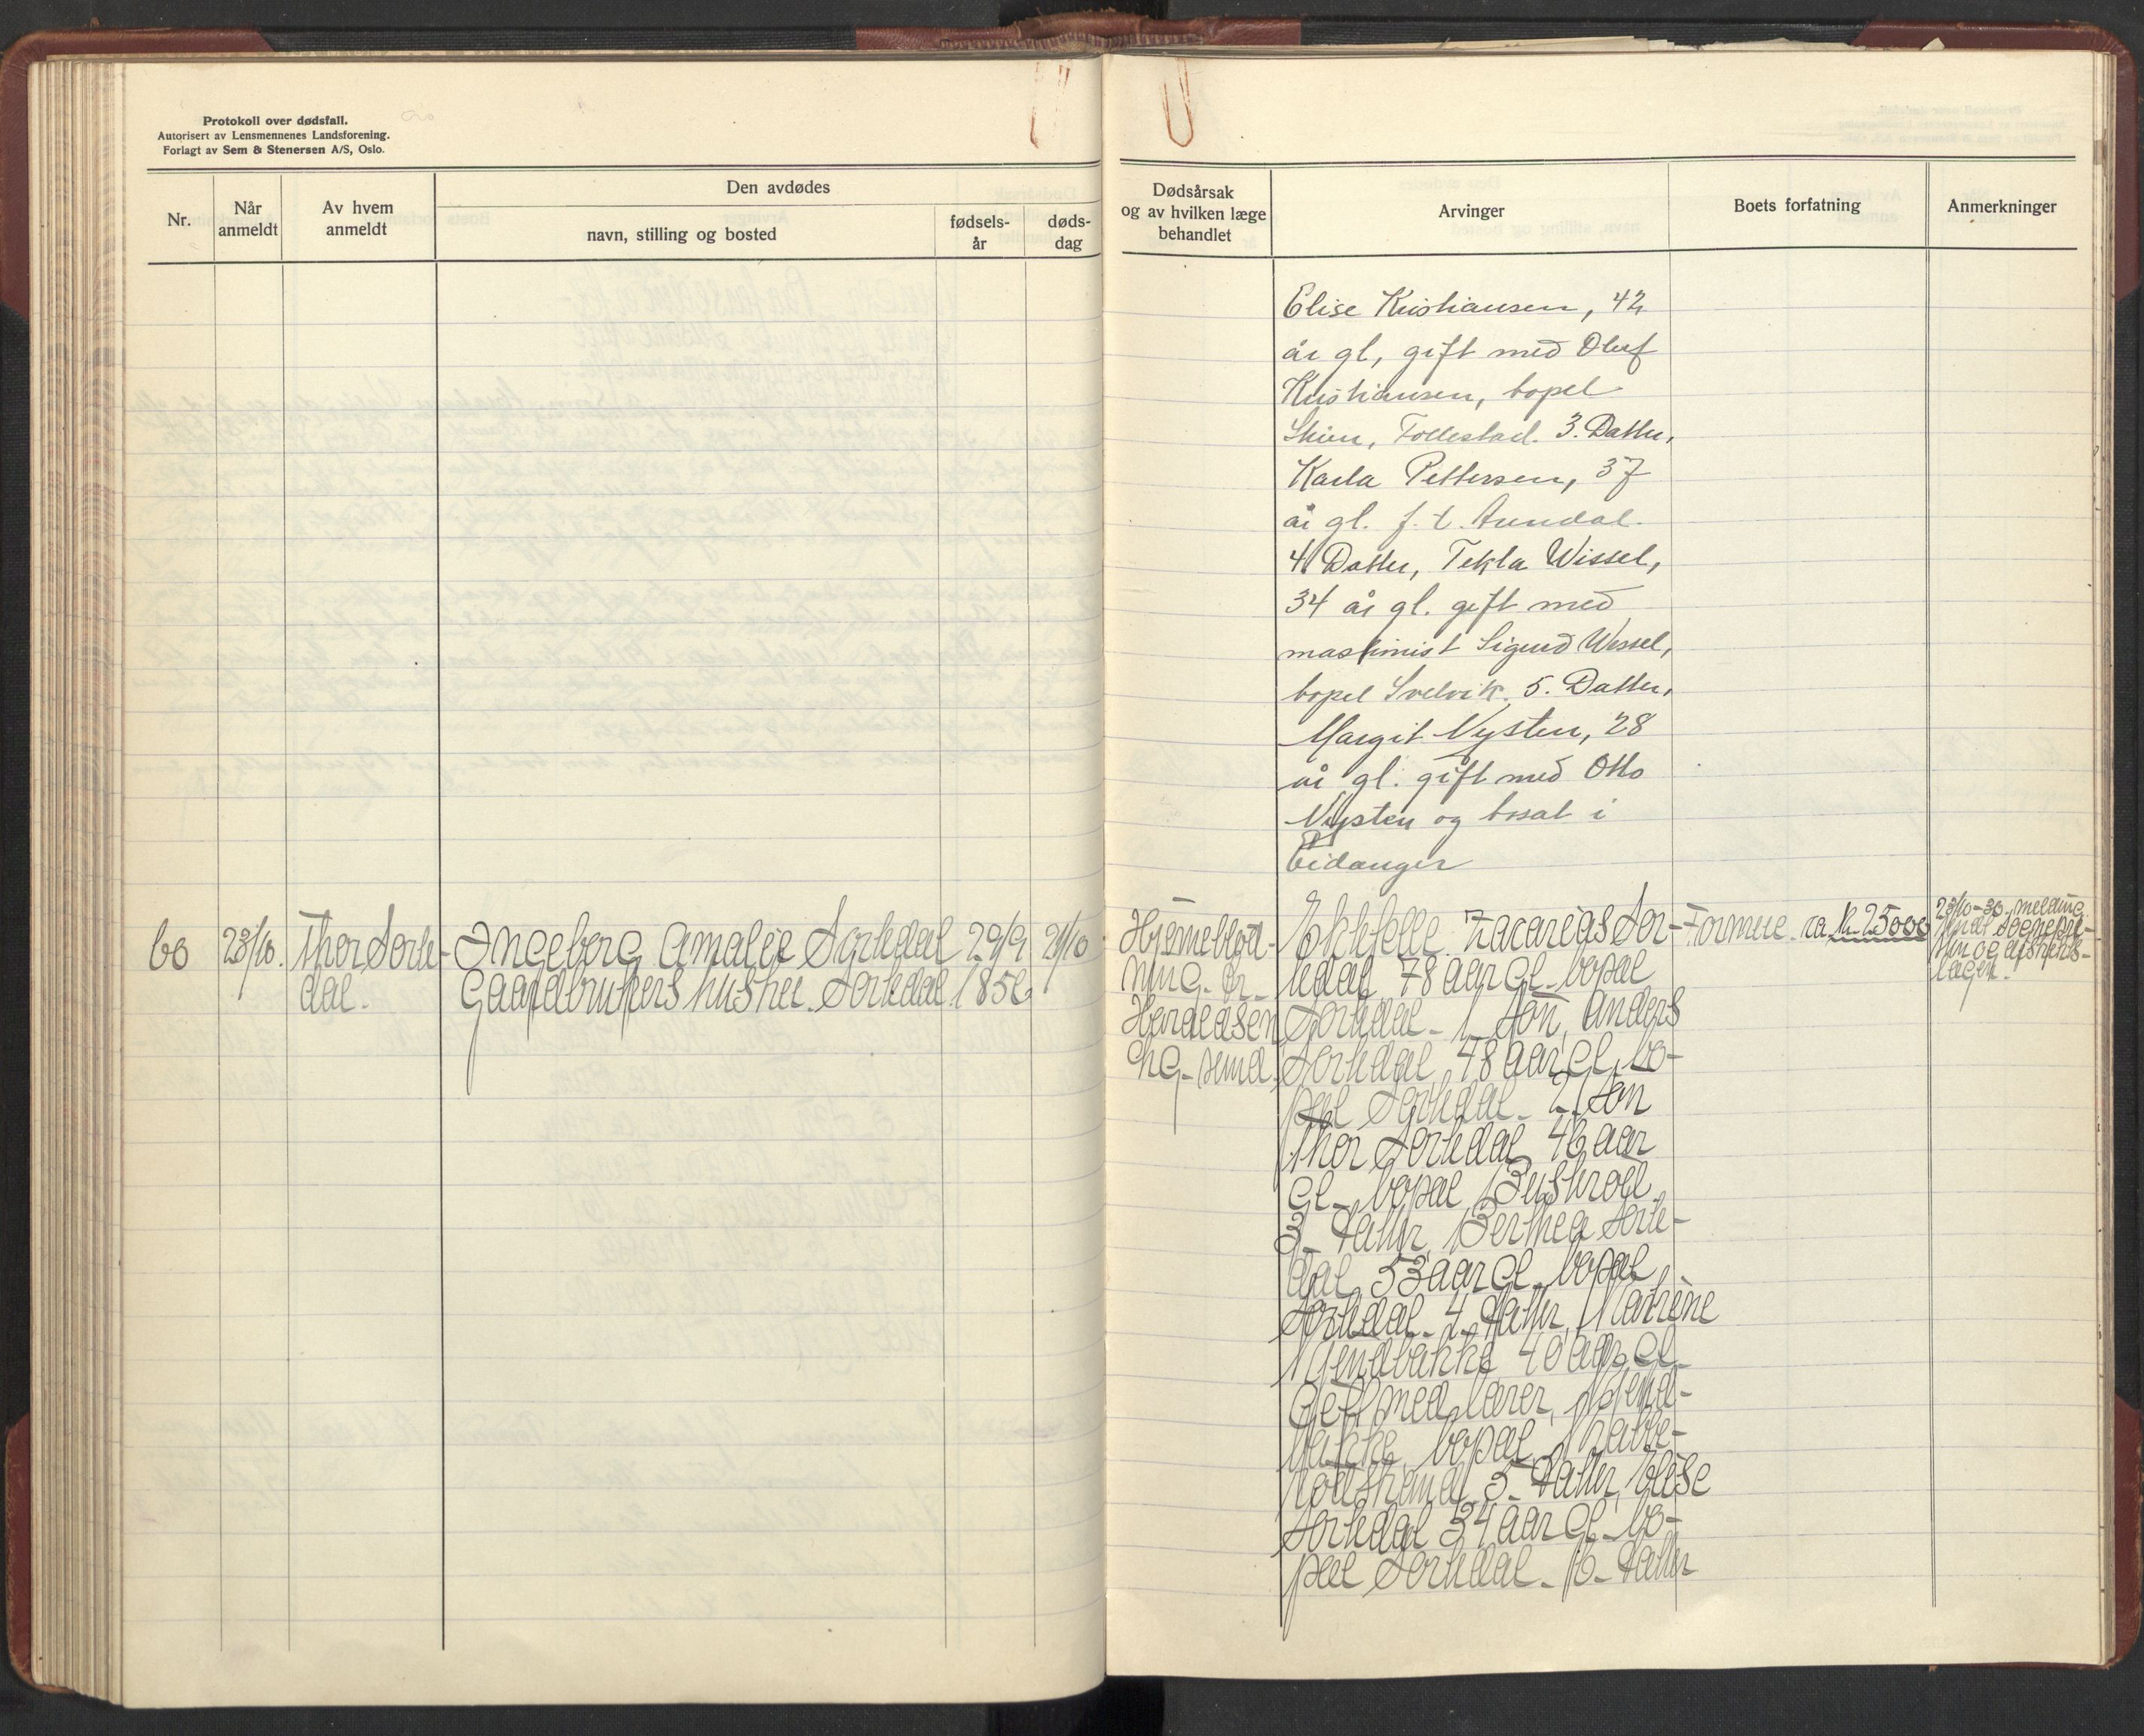 Protokoll over dødsfall.
Autorisert av Lensmennenes Landsforening.
Forlagt av Sem & Stenersen A/S, Oslo.
Nr.
Når anmeldt
Av hvem anmeldt
Den avdødes
navn, stilling og bosted
fødsels-år
døds-dag
Dødsårsak og av hvilken læge behandlet
Arvinger
Boets forfatning
Anmerkninger
Elise Kristiansen, 42
år gl, gift med Oluf
Kristiansen, bopel
Skien, Follestad. 3. Datter,
Karla Pettersen, 37
år gl. f. t. Arendal.
4. Datter, Tekla Wissel,
34 år gl. gift med
maskinist Sigurd Wessel,
bopel Svelvik. 5. Datter,
Margit Nysten, 28
år gl. gift med Otto
Nysten og bosat i
Eidanger
60
23/10.
Thor Sorte-
dal.
Ingeborg Amalie Sortedal
Gaardbrukers hustru. Sortedal
29/9
1856
21/10
Hjerneblød-
ning. Dr.
Haraldsen
Ektefelle Zacarias Sor-
tedal 78 aar gl. bopæl
Sortedal. 1. Søn, Anders
Sortedal, 48 aar gl, bo-
pæl Sortedal. 2. Søn
Thor Sortedal 46 aar
gl. bopæl
3. Datter Berthea Sorte-
dal 53 aar gl. bopæl
Sortedal. 4. Datter
40 aar gl.
gift med lærer
bakke, bopæl
5. Datter Elise
Sortedal 34 aar gl. bo-
pæl Sortedal. 6. Datter
Formue ca kr. 25000
23/10-30 melding
lagen.